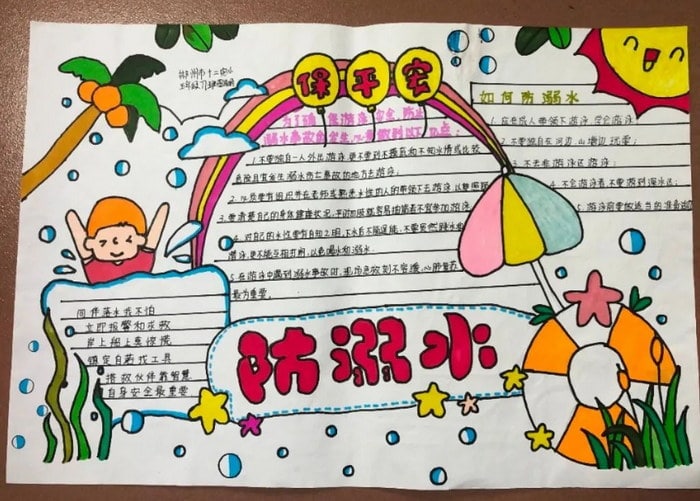 郴州市十二完小
保平安
为了确保游泳安全,防止
溺水事故的发生,必须做到以下几点:
1.不要独自一人外出游泳,更不要到不摸底和不知水情或比较
危险且宜发生溺水伤亡事故的地方去游泳
2.必须要有组织并在老师或熟悉水性的人的带领下去游泳,以便照顾
3.要清楚自己的身体健康状况,平时四肢就容易抽筋者不宜参加游泳
4.对自己的水性要有自知之明,下水后不能逞能,不要贸然跳水
游泳,更不能互相打闹,以免喝水和溺水
5.在游泳中遇到溺水事故时,现场急救刻不容缓,心肺复苏
最为重要。
如何防溺水
1.应在成人带领下游泳,学会游泳
2.不要独自在河边、山塘边玩耍;
3.不去非游泳区游泳;
4.不会游泳者,不要游到深水区;
5.游泳前要做适当的准备
同伴落水我不怕
立即报警和求救
岸上船上莫慌慌
镇定自若找工具
搭救伙伴靠智慧
自身安全最重要
防溺水